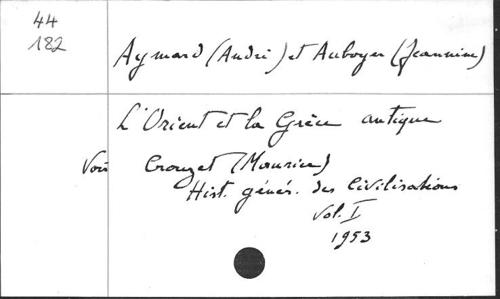 44
182
Aymard (André) et Auboyer (Jeannine)
L'Orient et la Grèce antique
Voir Crouzet (Maurice)
Hist. génér. des Civilisations
Vol. I
1953